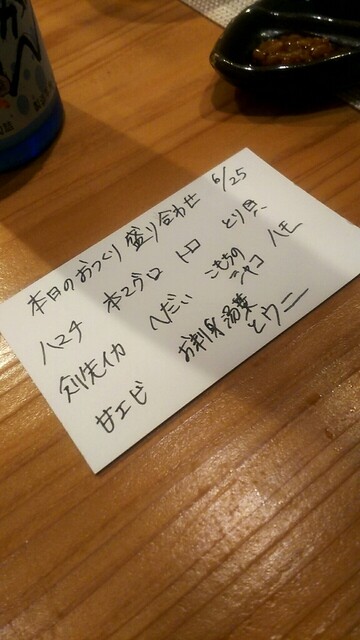 本日のおつくり盛り合わせ 6/25
ハマチ 本マグロ トロ とり貝
剣先イカ へだい こもちの ハモ
シャコ
甘エビ お刺身湯葉
とウニ